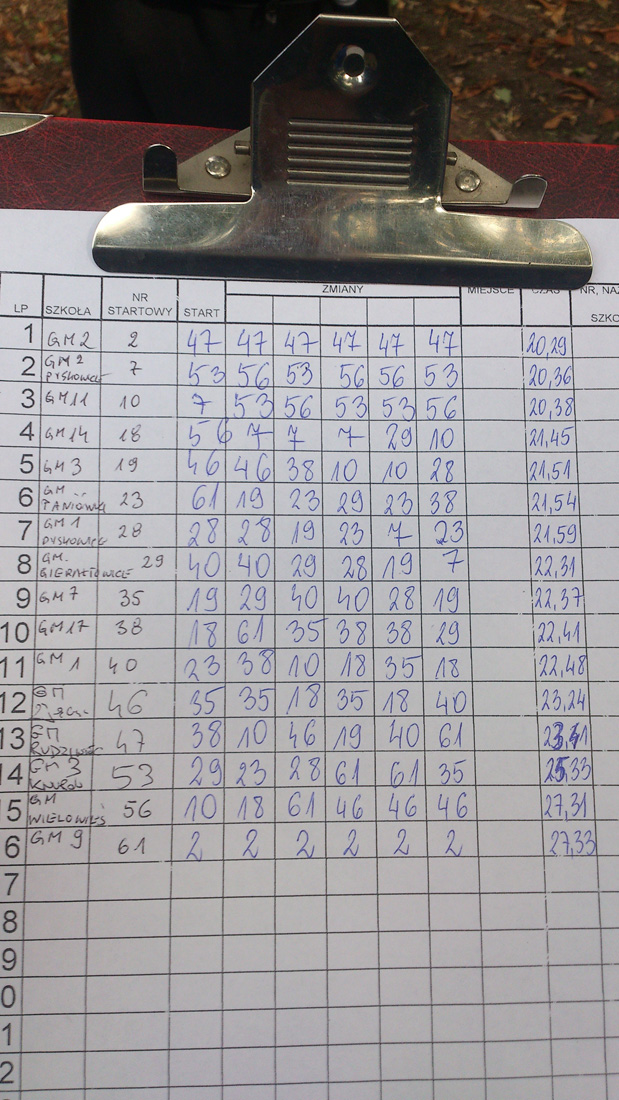 LP SZKOŁA NR STARTOWY START ZMIANY MIEJSCE CZAS NR, NAZ SZKO
1 GM2 2 47 47 47 47 47 47 20,29
2 GM2 PYSKOWICE 7 53 56 53 56 56 53 20,36
3 GM11 10 7 53 56 53 53 56 20,38
4 GM14 18 56 7 7 7 29 10 21,45
5 GM3 19 46 46 38 10 10 28 21,51
6 GM 23 61 19 23 29 23 38 21,54
7 GM1 PYSKOWICE 28 28 28 19 23 7 23 21,59
8 GM. GIERAŁTOWICE 29 40 40 29 28 19 7 22,31
9 GM7 35 19 29 40 40 28 19 22,37
10 GM17 38 18 61 35 38 38 29 22,41
11 GM1 40 23 38 10 18 35 18 22,48
12 GM 46 35 35 18 35 18 40 23,24
13 GM RUDZINIEC 47 38 10 46 19 40 61
14 GM3 53 29 23 28 61 61 35 25,33
5 GM WIELOWIEŚ 56 10 18 61 46 46 46 27,31
6 GM9 61 2 2 2 2 2 2 27,33
7
8
9
0
1
2